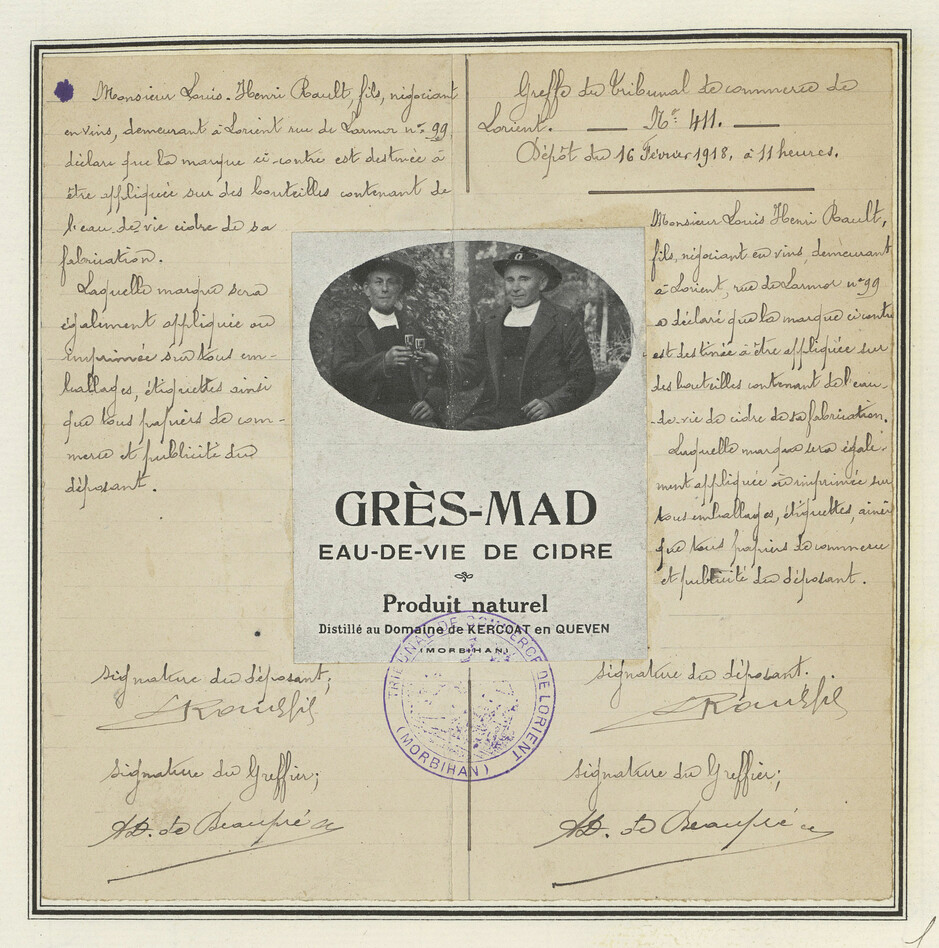 Monsieur Louis-Henri Rault, fils, négociant
en vins, demeurant à Lorient rue de Larmor n° 99
déclare que la marque ci-contre est destinée à
être appliquée sur des bouteilles contenant de
l'eau-de-vie cidre de sa
fabrication.
Laquelle marque sera
également appliquée ou
imprimée sur tous em-
ballages, étiquettes ainsi
que tous papiers de com-
merce et publicité du
déposant.
Signature du déposant;
Signature du Greffier;
AD. de Beaupré
Greffe du Tribunal de commerce de
Lorient. — N°: 411. —
Dépôt du 16 Février 1918, à 11 heures.
Monsieur Louis Henri Rault,
fils, négociant en vins, demeurant
à Lorient, rue de Larmor n° 99
a déclaré que la marque ci contre
est destinée à être appliquée sur
des bouteilles contenant de l'eau-
-de-vie de cidre de sa fabrication.
Laquelle marque sera égale-
ment appliquée ou imprimée sur
tous emballages, étiquettes, ainsi
que tous papiers de commerce
et publicité du déposant.
Signature du déposant.
Signature du Greffier;
AD. de Beaupré
GRÈS-MAD
EAU-DE-VIE DE CIDRE
Produit naturel
Distillé au Domaine de KERCOAT en QUEVEN
(MORBIHAN)
TRIBUNAL DE COMMERCE DE LORIENT
(MORBIHAN)